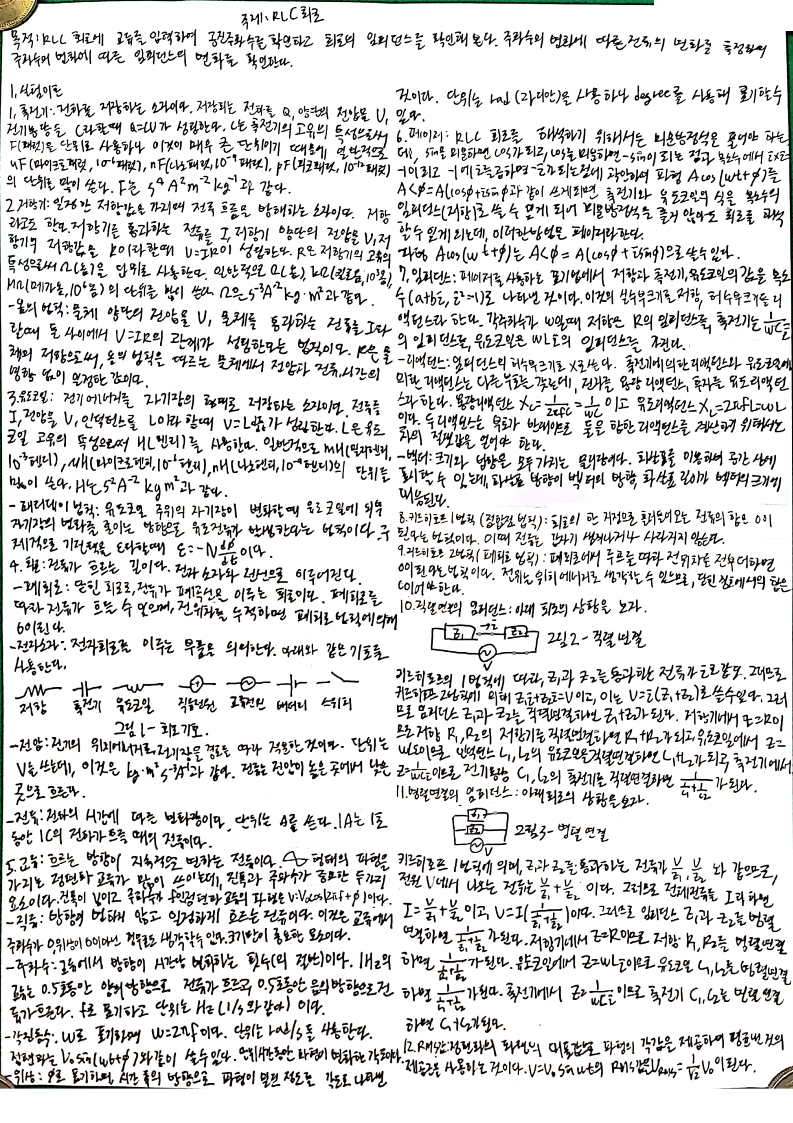 주제: RLC 회로
목적: RLC 회로에 교류를 입력하여 공진주파수를 확인하고 회로의 임피던스를 확인해 본다. 주파수의 변화에 따른 전류의 변화를 측정하여
주파수의 변화에 따른 임피던스의 변화를 확인한다.
1. 실험이론
1. 축전기: 전하를 저장하는 소자이다. 저장되는 전하를 Q, 양단의 전압을 V,
전기용량을 C라 할때 Q=CV가 성립한다. C는 축전기의 고유의 특성으로써
F(패럿)을 단위로 사용하나 이것이 매우 큰 단위이기 때문에 일반적으로
uF(마이크로패럿, 10⁻⁶패럿), nF(나노패럿, 10⁻⁹패럿), pF(피코패럿, 10⁻¹²패럿)
의 단위를 많이 쓴다. F은 s⁴A²m⁻²kg⁻¹과 같다.
2. 저항기: 일정한 저항값을 가지며 전류 흐름을 방해하는 소자이다. 저항
라고도 한다. 저항기를 통과하는 전류를 I, 저항기 양단의 전압을 V, 저
항기의 저항값을 R이라 할때 V=IR이 성립한다. R은 저항기의 고유의
특성으로써 Ω(옴)을 단위로 사용한다. 일반적으로 Ω(옴), kΩ(킬로옴, 10³옴),
MΩ(메가옴, 10⁶옴)의 단위를 많이 쓴다. Ω은 s⁻³A⁻²kg·m²과 같다.
-옴의 법칙: 물체 양단의 전압을 V, 물체를 통과하는 전류를 I라
할때 둘 사이에서 V=IR의 관계가 성립한다는 법칙이다. R은 물
체의 저항으로써, 옴의 법칙을 따르는 물체에서 전압과 전류, 시간의
영향 없이 일정한 값이다.
3. 유도코일: 전기에너지를 자기장의 형태로 저장하는 소자이다. 전류를
I, 전압을 V, 인덕턴스를 L이라 할때 V=L dI/dt가 성립한다. L은 유도
코일 고유의 특성으로써 H(헨리)를 사용한다. 일반적으로 mH(밀리헨리,
10⁻³헨리), uH(마이크로헨리, 10⁻⁶헨리), nH(나노헨리, 10⁻⁹헨리)의 단위를
많이 쓴다. H는 s⁻²A⁻²kg m²과 같다.
-패러데이 법칙: 유도코일 주위의 자기장이 변화할때 유도코일에 외부
자기장의 변화를 줄이는 방향으로 유도전류가 발생한다는 법칙이다. 구
체적으로 기전력을 ε라 할때 ε=-N dφ/dt이다.
4. 회로: 전류가 흐르는 길이다. 전자 소자와 전선으로 이루어진다.
-폐회로: 닫힌 회로로, 전류가 폐곡선을 이루는 회로이다. 폐회로를
따라 전류가 흐를 수 있으며, 전위차를 누적하면 폐회로 법칙에 의해
0이된다.
-전자소자: 전자회로를 이루는 부품을 의미한다. 아래와 같은 기호를
사용한다.
저항 축전기 유도코일 직류전원 교류전원 배터리 스위치
그림 1- 회로기호.
-전압: 전기의 위치에너지로, 전기장을 경로를 따라 적분한 것이다. 단위는
V를 쓰는데, 이것은 kg·m²s⁻³A⁻¹과 같다. 전류는 전압이 높은 곳에서 낮은
곳으로 흐른다.
-전류: 전하의 시간에 따른 변화량이다. 단위는 A를 쓴다. 1A는 1초
동안 1C의 전하가 흐를 때의 전류이다.
5. 교류: 흐르는 방향이 지속적으로 변하는 전류이다. 형태의 파형을
가지는 정현파 교류가 많이 쓰이는데, 진폭과 주파수가 중요한 두가지
요소이다. 진폭이 V이고 주파수가 f인 정현파 교류의 파형은 V=V₀cos(2πf+φ)이다.
-직류: 방향이 변하지 않고 일정하게 흐르는 전류이다. 이것은 교류에서
주파수가 0, 위상이 0이라는 경우로도 생각할 수 있다. 크기만이 중요한 요소이다.
-주파수: 교류에서 방향이 시간당 변화하는 횟수(의 절반)이다. 1Hz의
교류는 0.5초동안 양의 방향으로 전류가 흐르고, 0.5초동안 음의 방향으로 전
류가 흐른다. f로 표기하고 단위는 Hz(1/s와 같다)이다.
-각진동수: ω로 표기하며 ω=2πf이다. 단위는 rad/s를 사용한다.
정현파는 V₀sin(ωt+φ)와 같이 쓸 수 있다. 단위시간동안 파형이 변화한 각도이다.
-위상: φ로 표기하며, 시간 축의 방향으로 파형이 밀린 정도를 각도로 나타낸
것이다. 단위는 rad(라디안)을 사용하나 degree를 사용해 표기할수
있다.
6. 페이저: RLC 회로를 해석하기 위해서는 미분방정식을 풀어야 하는
데, sin을 미분하면 cos가 되고, cos를 미분하면 -sin이 되는 점과 복소수에서 i×i=
-1이고 -1에 i를 곱하면 -i가 되는 점에 착안하여 파형 Acos(ωt+φ)를
A<φ=A(cosφ+isinφ)과 같이 쓰게되면 축전기와 유도코일의 식을 복소수의
임피던스(저항)로 쓸 수 있게 되어 미분방정식을 풀지 않아도 회로를 해석
할 수 있게 되는데, 이러한 방법을 페이저라 한다.
파형 Acos(ωt+φ)는 A<φ=A(cosφ+isinφ)으로 쓸수있다.
7. 임피던스: 페이저를 사용하는 표기법에서 저항과 축전기, 유도코일의 값을 복소
수(a+bi, i²=-1)로 나타낸 것이다. 이것의 실수부 크기를 저항, 허수부 크기를 리
액턴스라 한다. 각주파수가 ω일때 저항은 R의 임피던스를, 축전기는 1/ωCi
의 임피던스를, 유도코일은 ωLi의 임피던스를 가진다.
-리액턴스: 임피던스의 허수부 크기로 X로 쓴다. 축전기에 의한 리액턴스와 유도코일에
의한 리액턴스는 다른 부호를 갖는데, 전자를 용량 리액턴스, 후자를 유도 리액턴
스라 한다. 용량리액턴스 Xc=1/2πfC=1/ωC이고 유도리액턴스 X_L=2πfL=ωL
이다. 두 리액턴스는 부호가 반대이므로 둘을 합한 리액턴스를 계산하기 위해서는
차의 절댓값을 얻어야 한다.
-벡터: 크기와 방향을 모두 가지는 물리량이다. 화살표를 이용하여 공간 상에
표시할 수 있는데, 화살표 방향이 벡터의 방향, 화살표 길이가 벡터의 크기에
대응된다.
8. 키르히호프 1법칙(접합점 법칙): 회로의 한 지점으로 흘러들어오는 전류의 합은 0이
된다는 법칙이다. 이때 전류는 갑자기 생겨나거나 사라지지 않는다.
9. 키르히호프 2법칙(폐회로 법칙): 폐회로에서 루프를 따라 전위차를 전부 더하면
0이 된다는 법칙이다. 전위는 위치에너지로 생각할 수 있으므로, 닫힌 경로에서의 합은
0이어야 한다.
10. 직렬연결의 임피던스: 아래 회로의 상황을 보자.
z₁ →i z₂
V
그림 2- 직렬 연결
키르히호프의 1법칙에 따라, z₁과 z₂를 통과하는 전류가 i로 같다. 그러므로
키르히호프 2법칙에 의해 z₁i+z₂i=V이고, 이는 V=i(z₁+z₂)로 쓸수있다. 그러
므로 임피던스 z₁과 z₂를 직렬연결하면 z₁+z₂가 된다. 저항기에서 z=R이
므로 저항 R₁, R₂의 저항기를 직렬연결하면 R₁+R₂가 되고, 유도코일에서 z=
ωLi이므로 인덕턴스 L₁, L₂의 유도코일을 직렬연결하면 L₁+L₂가 되고, 축전기에서
z=1/ωCi이므로 전기용량 C₁, C₂의 축전기를 직렬연결하면 1/(1/C₁+1/C₂)가 된다.
11. 병렬연결의 임피던스: 아래 회로의 상황을 보자.
z₁
z₂
V
그림3- 병렬 연결
키르히호프 1법칙에 의해, z₁과 z₂를 통과하는 전류가 V/z₁, V/z₂ 와 같으므로,
전원 V에서 나오는 전류는 V/z₁+V/z₂ 이다. 그러므로 전체전류를 I라 하면
I=V/z₁+V/z₂이고, V=I(1/(1/z₁+1/z₂))이다. 그러므로 임피던스 z₁과 z₂를 병렬
연결하면 1/(1/z₁+1/z₂)가 된다. 저항기에서 z=R이므로 저항 R₁, R₂를 병렬연결
하면 1/(1/R₁+1/R₂)가 된다. 유도코일에서 z=ωLi이므로 유도코일 L₁, L₂를 병렬연결
하면 1/(1/L₁+1/L₂)가 된다. 축전기에서 z=1/ωCi이므로 축전기 C₁, C₂를 병렬 연결
하면 C₁+C₂가 된다.
12. RMS값: 정현파의 파형의 대푯값으로 파형의 각 값을 제곱하여 평균낸 것의
제곱근을 사용하는 것이다. V=V₀sinωt의 RMS값은 V_RMS=1/√2 V₀이 된다.